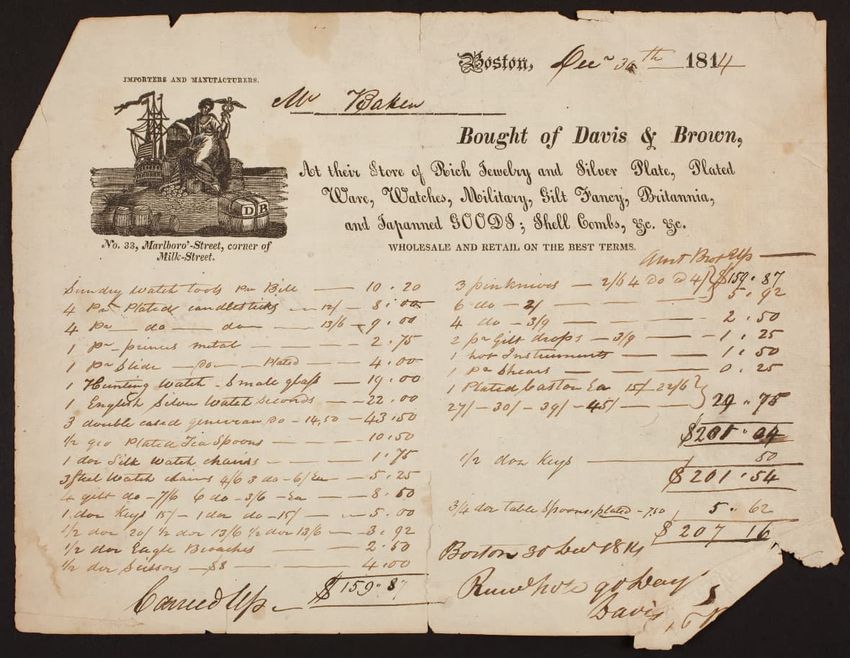 Boston, Decr 30th 1814
IMPORTERS AND MANUFACTURERS.
Mr Baker
Bought of Davis & Brown,
At their Store of Rich Jewelry and Silver Plate, Plated
Ware, Watches, Military, Gilt Fancy, Britannia,
and Japanned GOODS; Shell Combs, &c. &c.
WHOLESALE AND RETAIL ON THE BEST TERMS.
D B
No. 33, Marlboro'-Street, corner of
Milk-Street.
Sundry Watch tools Pr Bill — 10.20
4 Pr Plated candlesticks — 12/ — 8.00
4 Pr — do — do — 13/6 — 9.00
1 pr — metal — 2.75
1 Pr Slide — Do — Plated — 4.00
1 Hunting Watch - Small glass — 19.00
1 English Silver Watch Seconds — 22.00
3 double cased Do - 14,50 — 43.50
1/2 gro Plated Tea Spoons — 10.50
1 doz Silk Watch chains — 1.75
3 Steel Watch chains 4/6 3 do - 6/ Ea — 5.25
4 gilt do - 7/6 6 do - 3/6 - Ea — 8.50
1 doz Keys 15/ - 1 doz do - 15/ — 5.00
1/2 doz 20/ 1/2 doz 13/6 1/2 doz 13/6 — 3.92
1/2 doz Eagle Broaches — 2.50
1/2 doz Scissors — $8 — 4.00
Carried Up - $159.87
Amt Brot Up —
3 penknives — 2/6 4 Do @ 4/ } $159.87
6 do - 2/ 5.92
4 do - 3/9 — 2.50
2 pr Gilt drops - 3/9 — 1.25
1 Instruments — 1.50
1 Pr Shears — 0.25
1 Plated Castor Ea 15/ 22/6 }
27/ - 30/ - 39/ - 45/ — 29.75
$201.04
1/2 doz Keys — 50
$201.54
3/4 doz Table Spoons, plated - 750 5.62
$207 16
Boston 30 Decr 1814
Davis